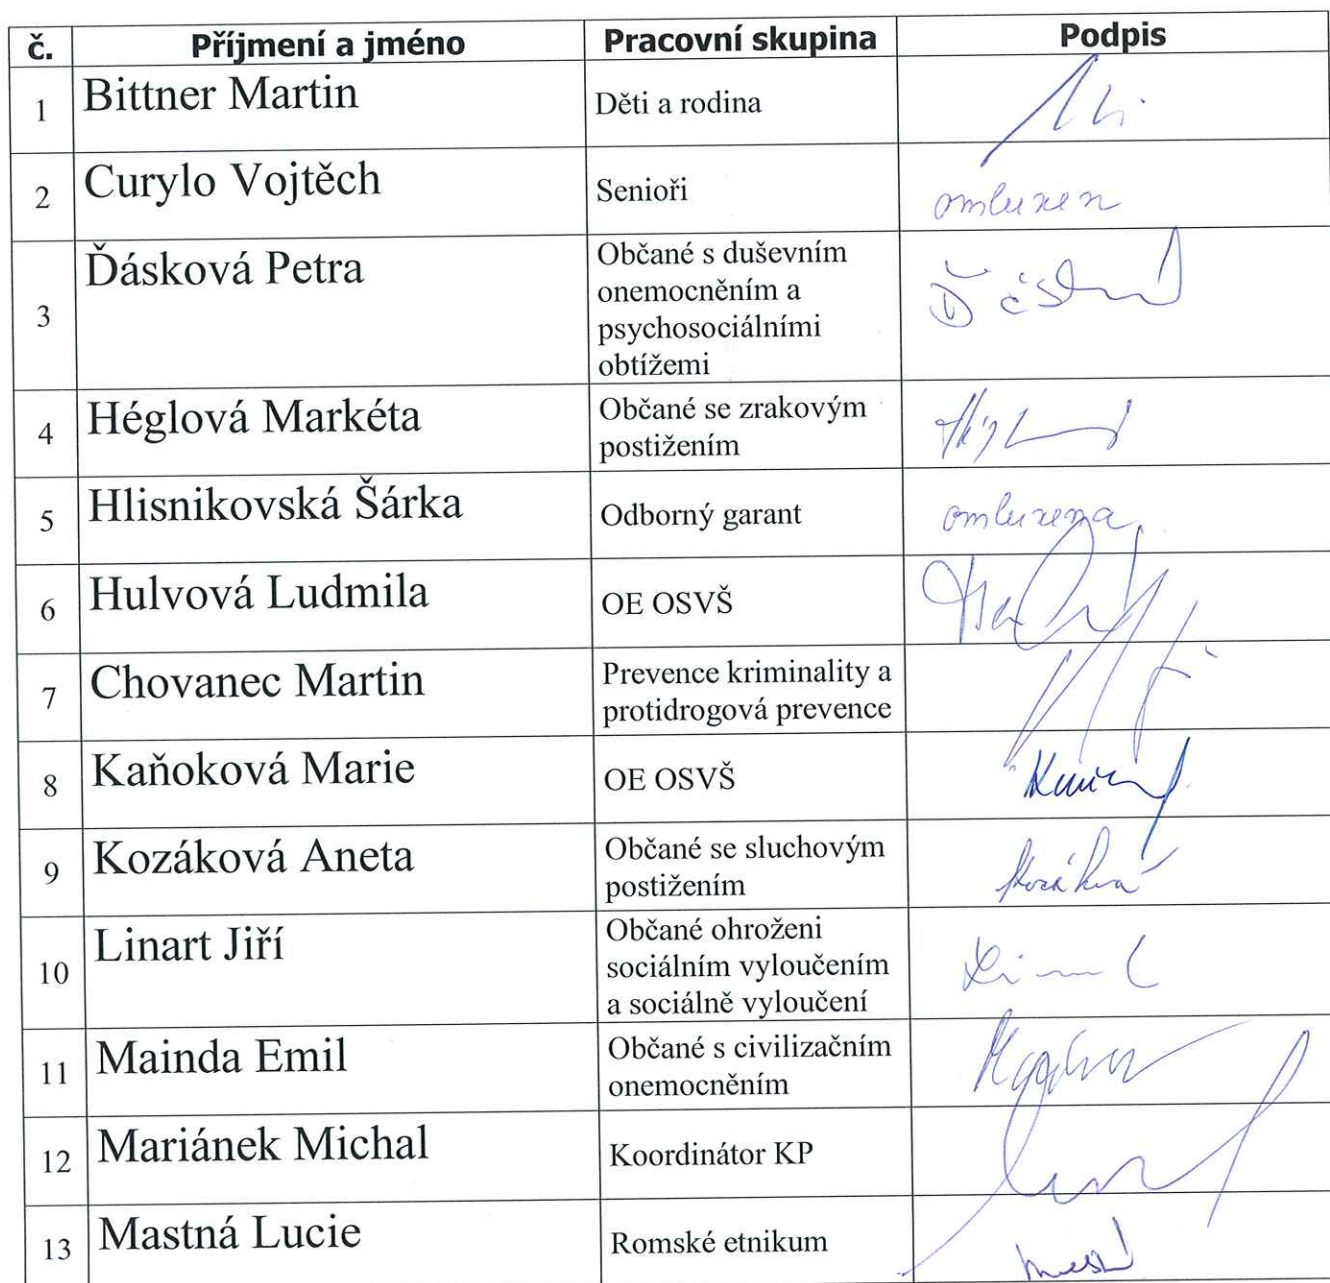 č. Příjmení a jméno Pracovní skupina Podpis
1 Bittner Martin Děti a rodina
2 Curylo Vojtěch Senioři omluven
3 Ďásková Petra Občané s duševním
onemocněním a
psychosociálními
obtížemi
4 Héglová Markéta Občané se zrakovým
postižením
5 Hlisnikovská Šárka Odborný garant omluvena
6 Hulvová Ludmila OE OSVŠ
7 Chovanec Martin Prevence kriminality a
protidrogová prevence
8 Kaňoková Marie OE OSVŠ
9 Kozáková Aneta Občané se sluchovým
postižením Kozáková
10 Linart Jiří Občané ohroženi
sociálním vyloučením
a sociálně vyloučení
11 Mainda Emil Občané s civilizačním
onemocněním
12 Mariánek Michal Koordinátor KP
13 Mastná Lucie Romské etnikum